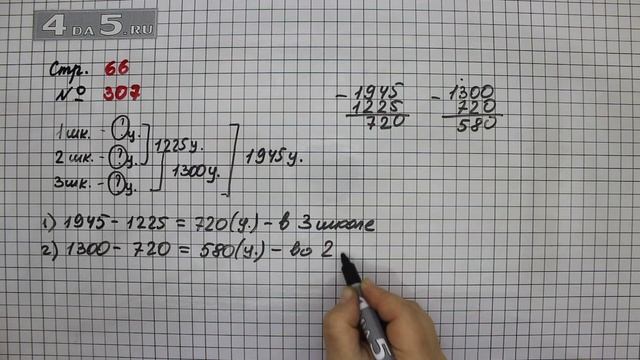 4 DA 5.RU
Стр. 66
№ 307
1 шк. - ? у.
2 шк. - ? у.
3 шк. - ? у.
1225 у.
1300 у.
1945 у.
- 1945
1225
720
- 1300
720
580
1) 1945 - 1225 = 720 (у.) - в 3 школе
2) 1300 - 720 = 580 (у.) - во 2